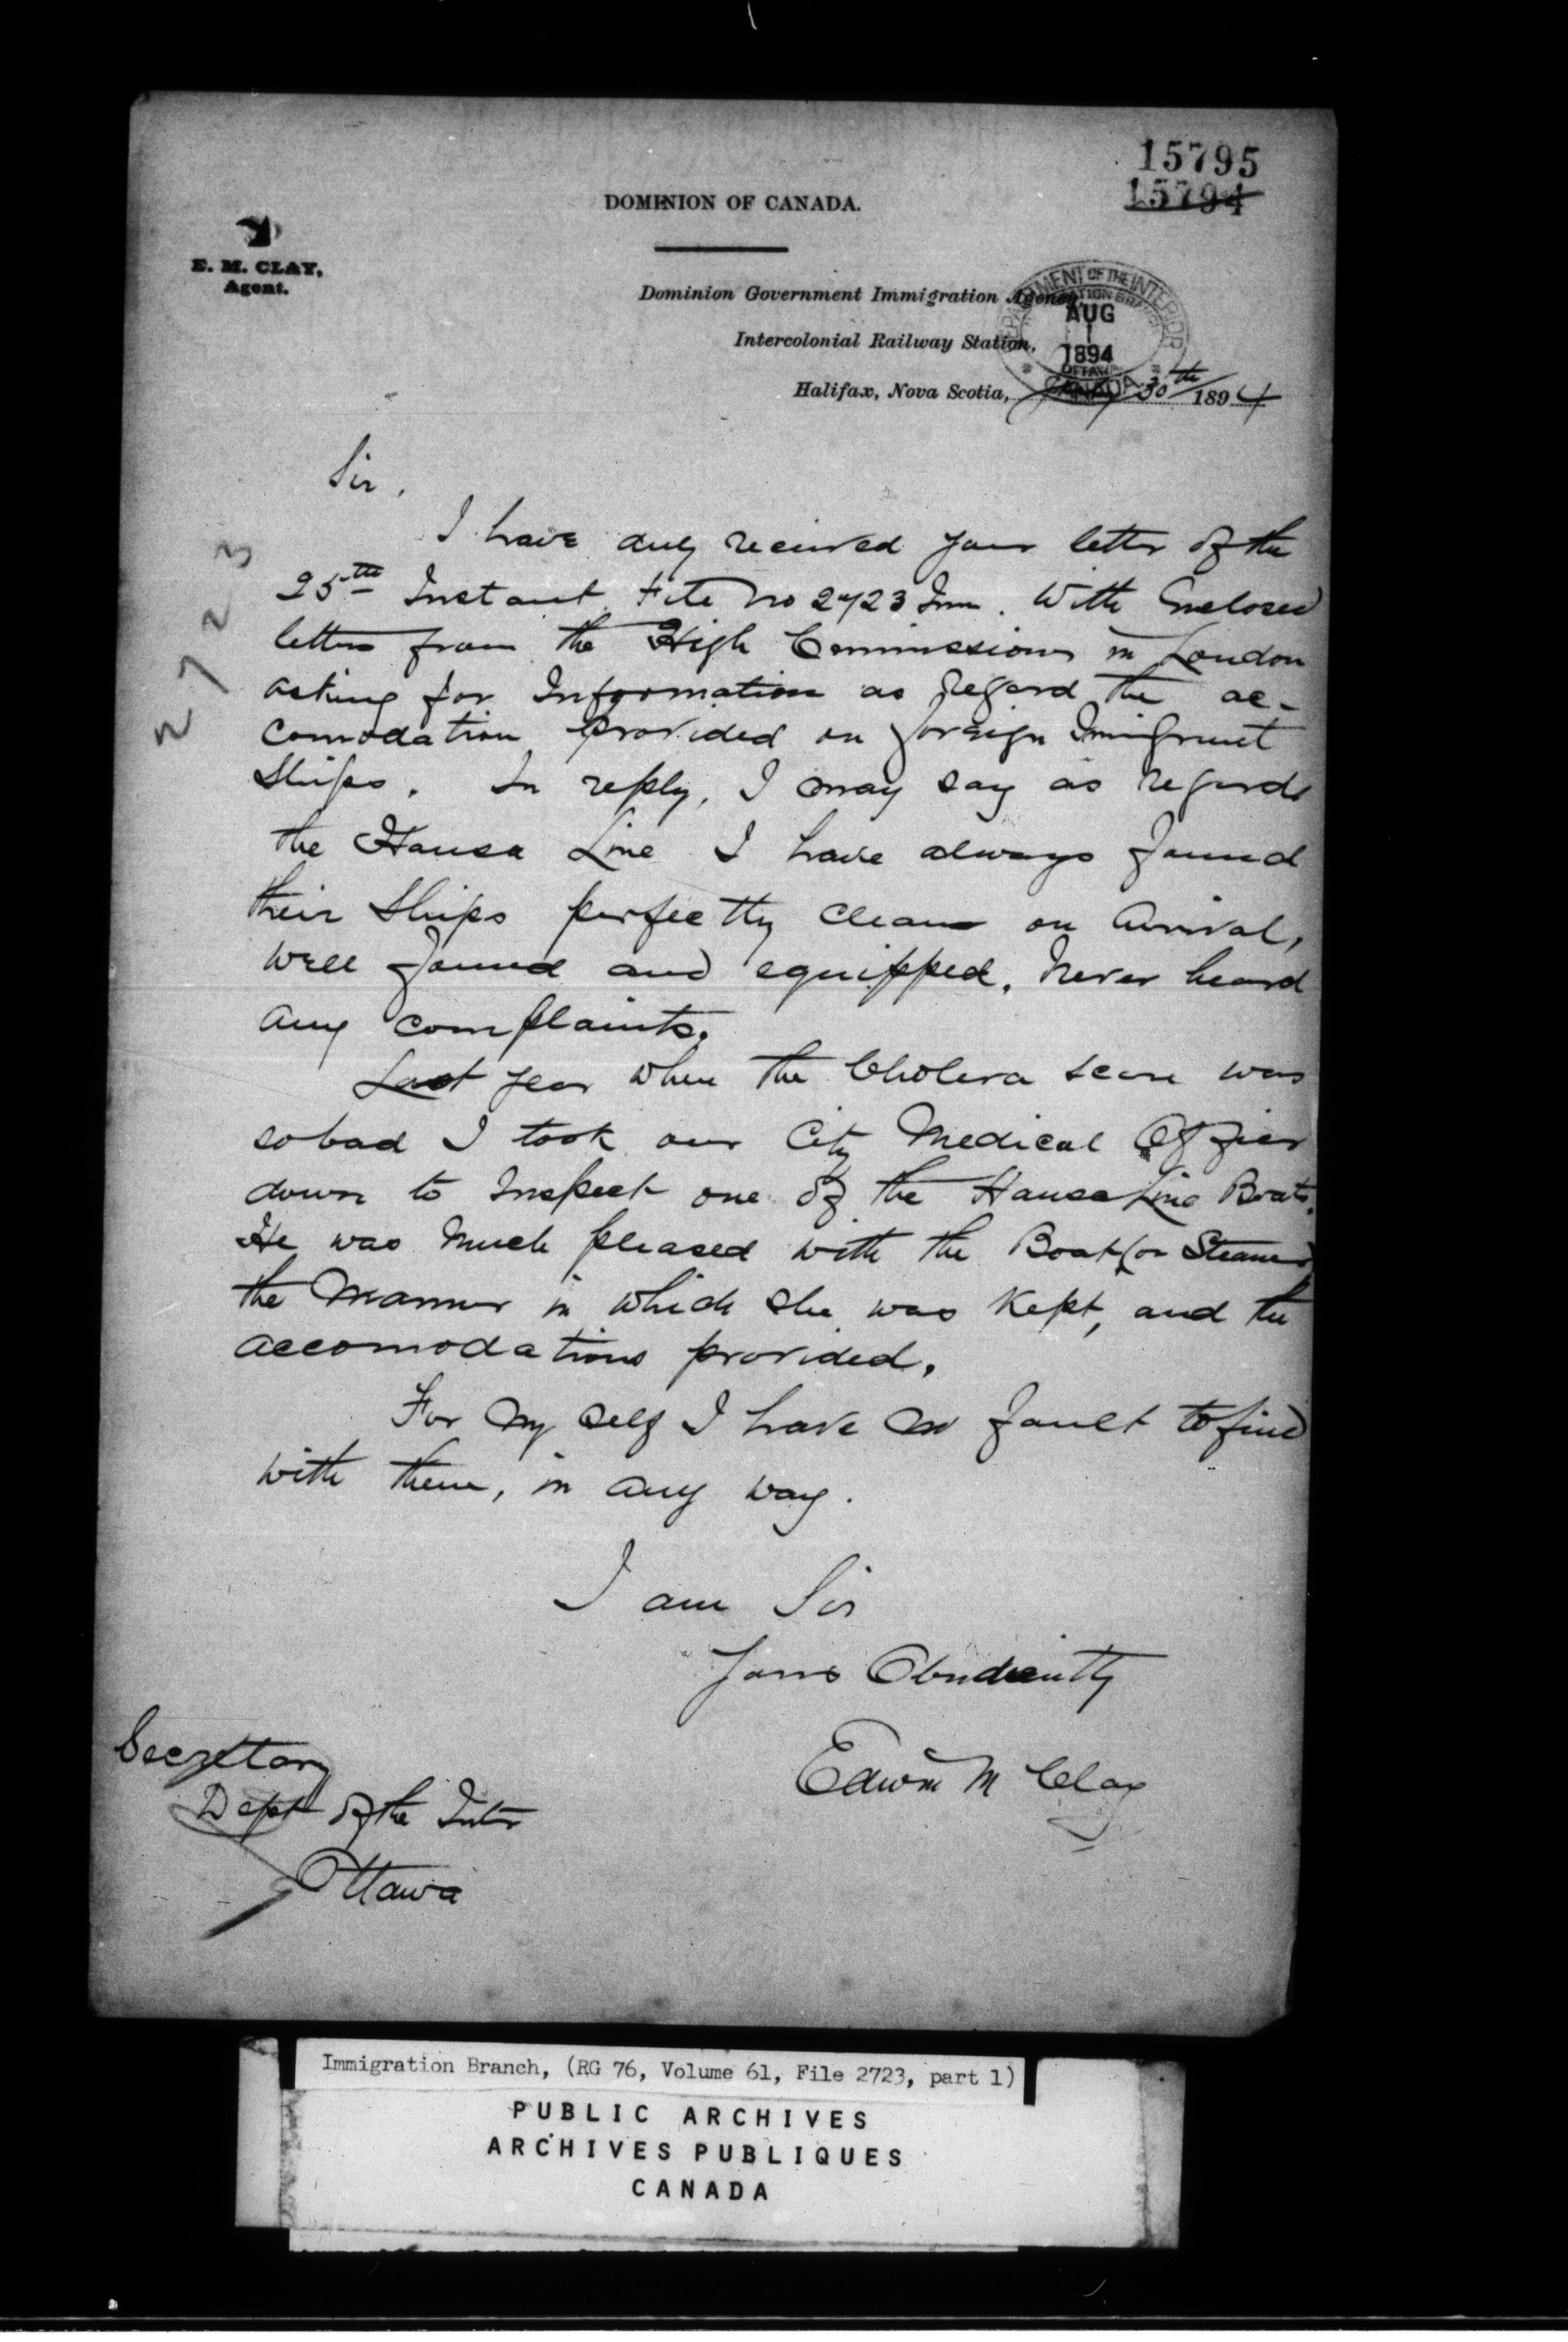 15795
15794
DOMINION OF CANADA.
E. M. CLAY,
Agent.
Dominion Government Immigration Agency,
Intercolonial Railway Station,
Halifax, Nova Scotia, 30th 1894
DEPARTMENT OF THE INTERIOR
AUG
1
1894
OTTAWA
CANADA
2723
Sir,
I have duly received your letter of the
25th Instant File No 2723 Imm. With Enclosed
letters from the High Commissioner in London
asking for Information as regard the ac-
comodation provided on foreign Imigrant
Ships. In reply, I may say as regards
the Hansa Line I have always found
their Ships perfectly clean on Arrival,
well found and equipped, Never heard
any complaints.
Last year when the Cholera scare was
so bad I took our City Medical Officer
down to Inspect one of the Hansa Line Boats.
He was much pleased with the Boat (or Steamer)
the Manner in which she was kept, and the
accomodations provided.
For my self I have no fault to find
with them, in any way.
I am Sir
Yours Obediently
Edwin M Clay
Secretary
Dept of the Inter
Ottawa
Immigration Branch, (RG 76, Volume 61, File 2723, part 1)
PUBLIC ARCHIVES
ARCHIVES PUBLIQUES
CANADA